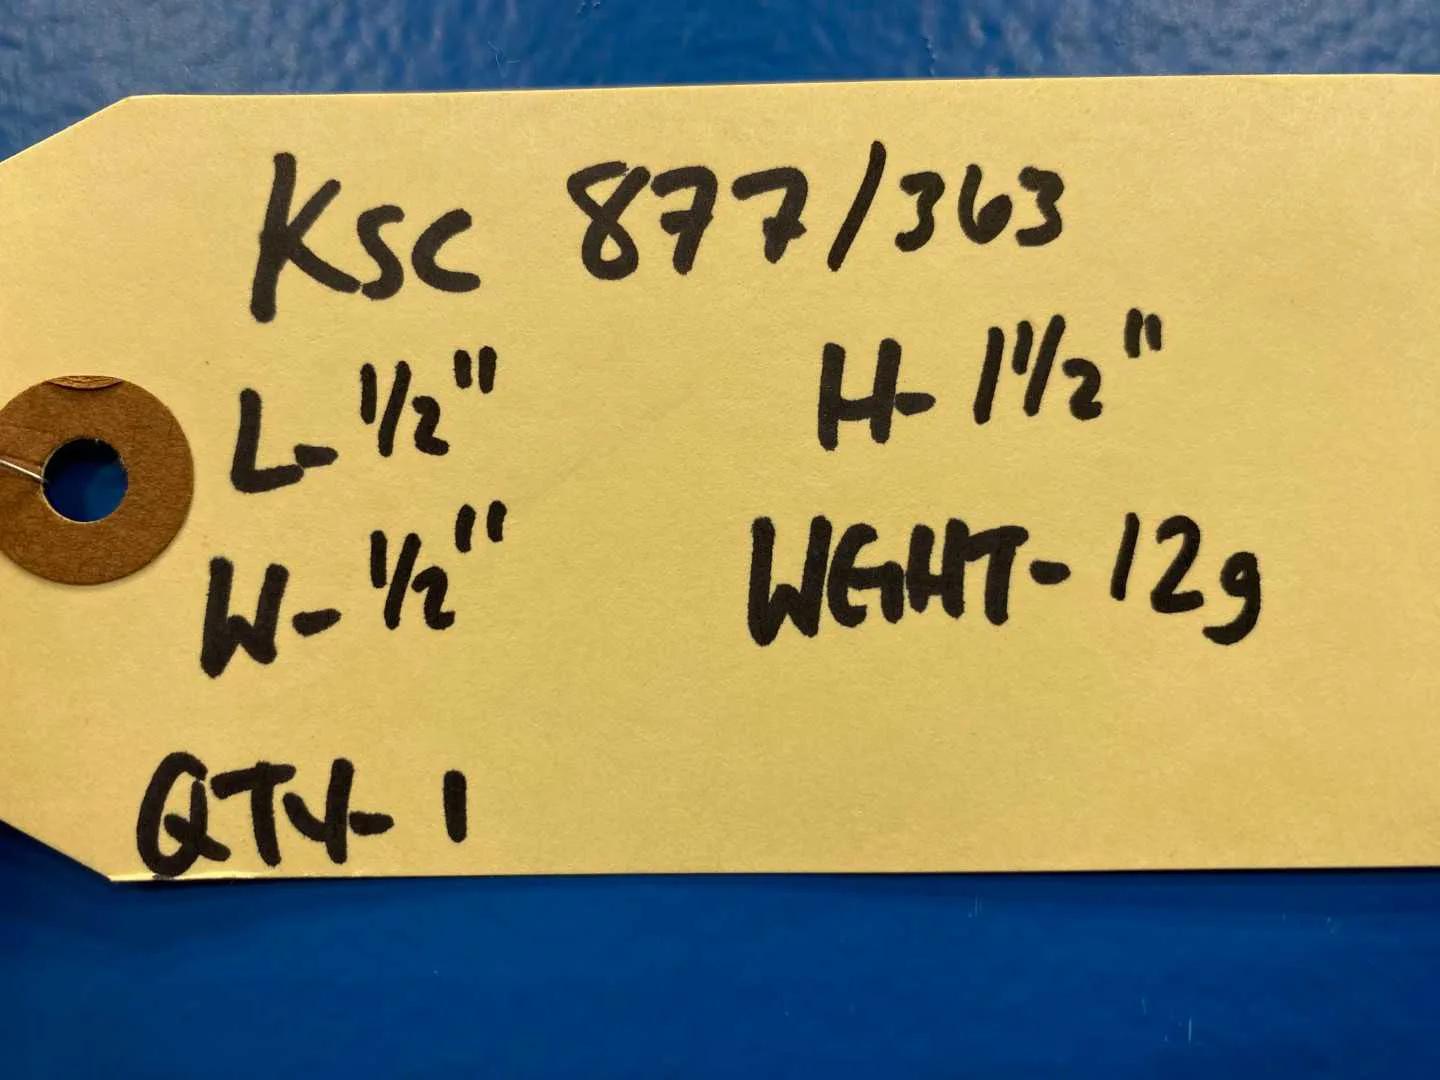 KSC 877/363
L- 1/2" H- 1 1/2"
W- 1/2" WGHT- 12g
QTY- 1